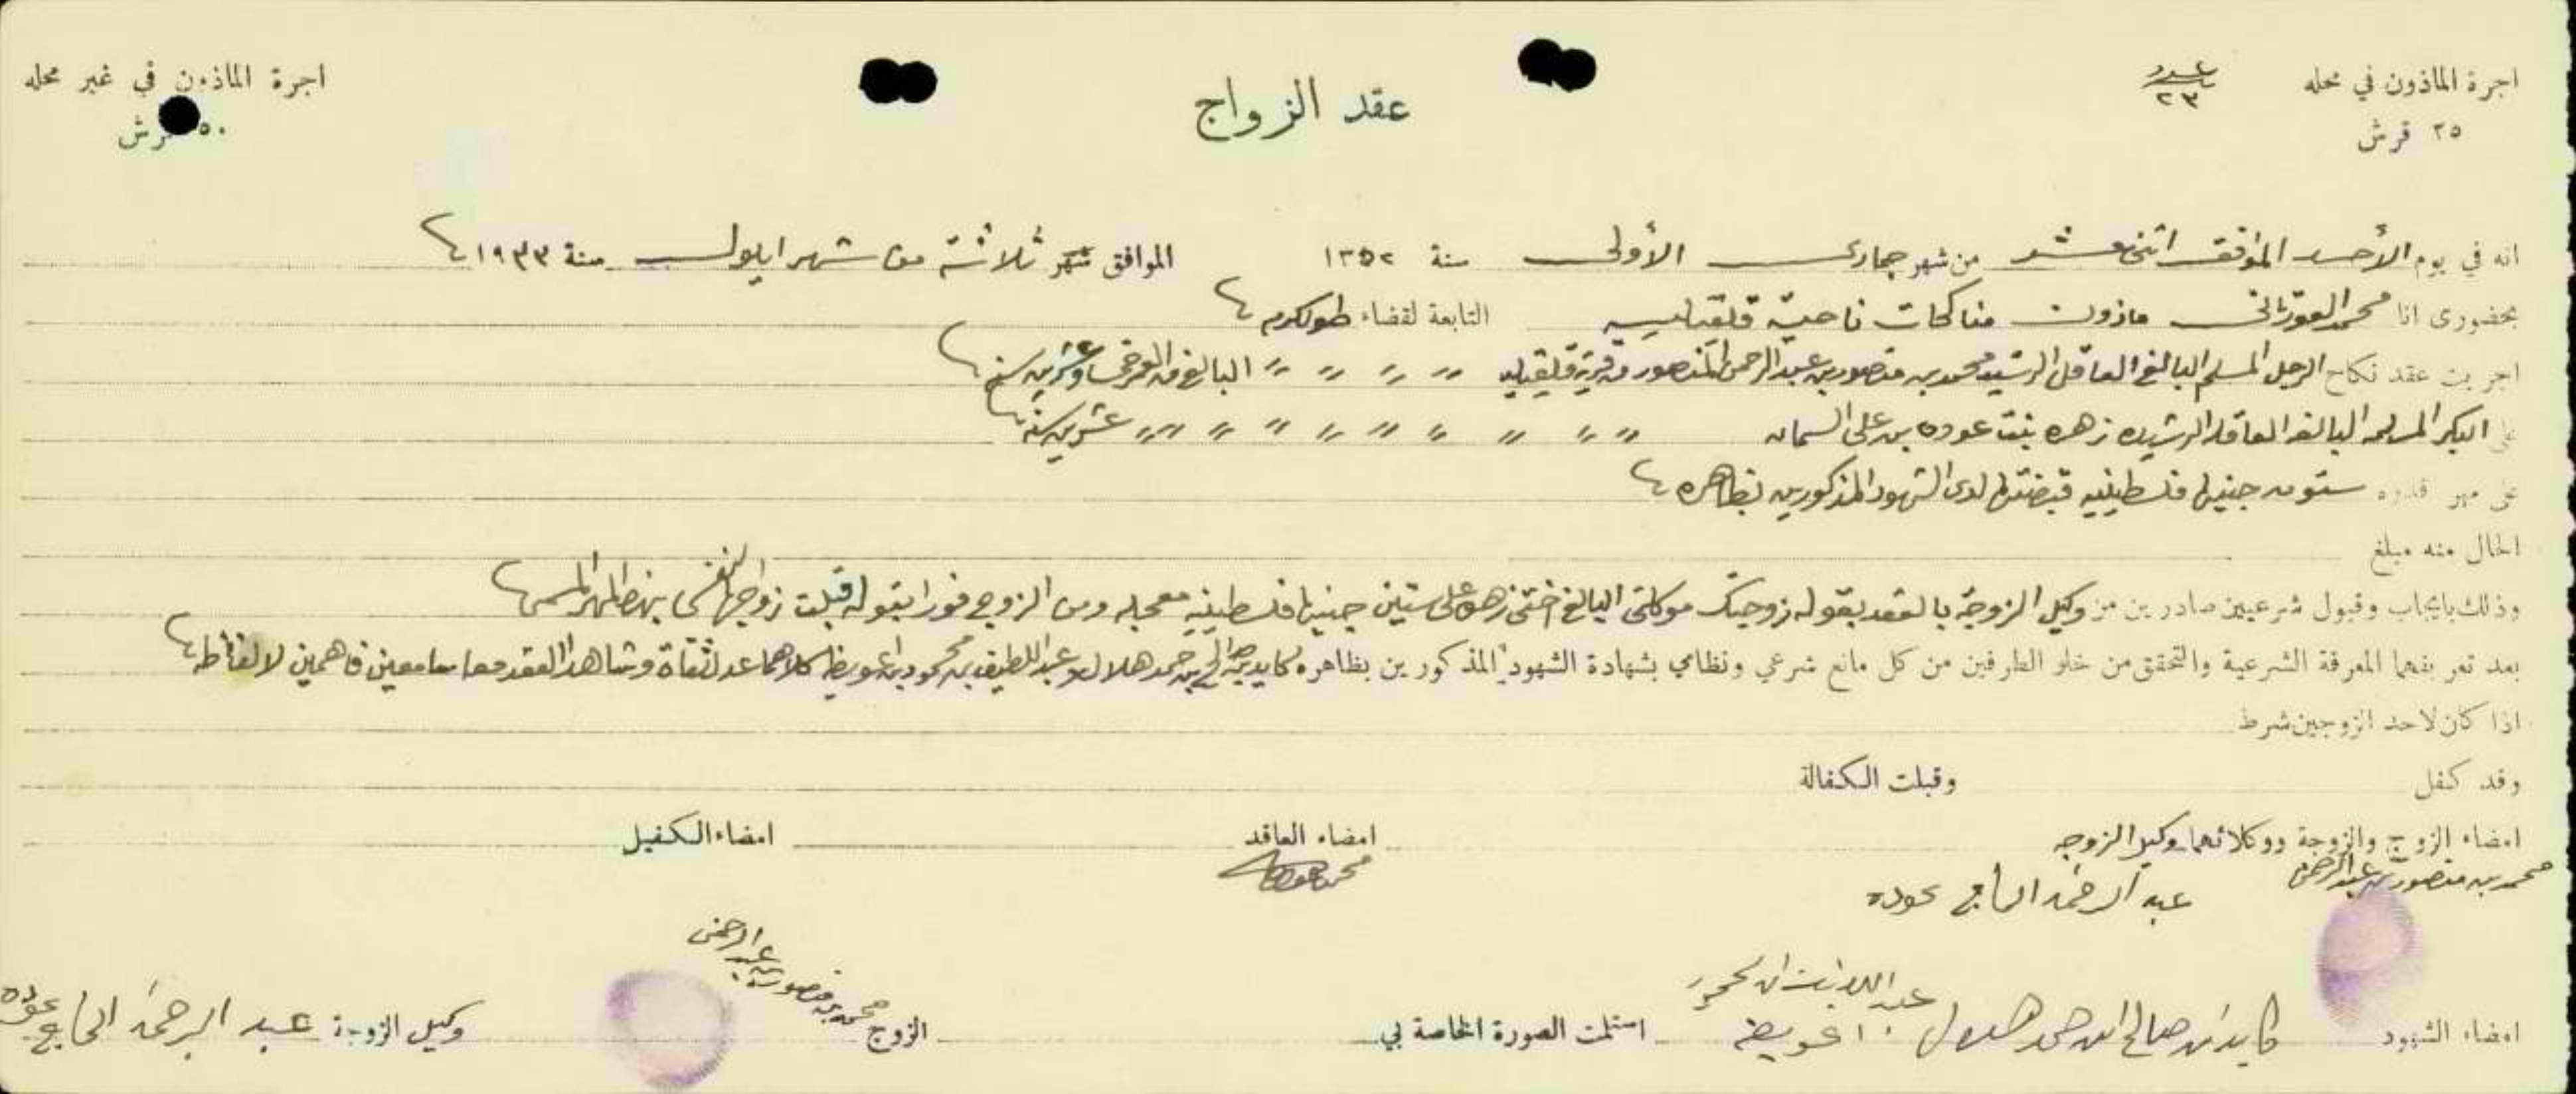 اجرة الماذون في محله
٢٥ قرش
عدد
٢٣
عقد الزواج
اجرة الماذون في غير محله
٥٠ قرش
انه في يوم الأحد الموافق اثنى عشر من شهر جمادى الأولى سنة ١٣٥٢ الموافق شهر ثلاثة من شهر ايلول سنة ١٩٣٣
بحضورى انا محمد ماذون مناكحات ناحية قلقيليه التابعة لقضاء طولكرم
اجريت عقد نكاح الرجل المسلم البالغ العاقل الرشيد محمد بن منصور بن عبد الرحمن المنصور من قرية قلقيليه 〃 〃 〃 〃 البالغ من العمر خمسا وعشرين سنه
على البكر المسلمه البالغه العاقله الرشيده زهره بنت عوده بن على السمان 〃 〃 〃 〃 〃 〃 〃 〃 〃 〃 عشرين سنه
على مهر قدره ستون جنيها فلسطينيه قبضتها لدى الشهود المذكورين بظاهره
الحال منه مبلغ
وذلك بايجاب وقبول شرعيين صادرين من وكيل الزوجة بالعقد بقوله زوجتك موكلتى البالغ اختى زهره على ستين جنيها فلسطينيه معجله ومن الزوج فورا بقوله قبلت زواجها لنفسى بهذا المهر المسمى
بعد تعريفهما المعرفة الشرعية والتحقق من خلو الطرفين من كل مانع شرعي ونظامي بشهادة الشهود المذكورين بظاهره كايد بن صالح بن حمد هلال وعبد اللطيف بن محمود بن اعويضه كلاهما عدل ثقاة وشاهدا العقد معا سامعين فاهمين لالفاظه
اذا كان لاحد الزوجين شرط
وقد كفل وقبلت الكفالة
امضاء الزوج والزوجة ووكلائهما وكيل الزوجه امضاء العاقد امضاء الكفيل
محمد بن منصور بن عبد الرحمن
عبد الرحمن الحاج عوده
امضاء الشهود كايد ابن صالح ابن حمد هلال اعويضه استلمت الصورة الخاصة بي الزوج محمد بن منصور بن عبد الرحمن وكيل الزوجة عبد الرحمن الحاج عوده